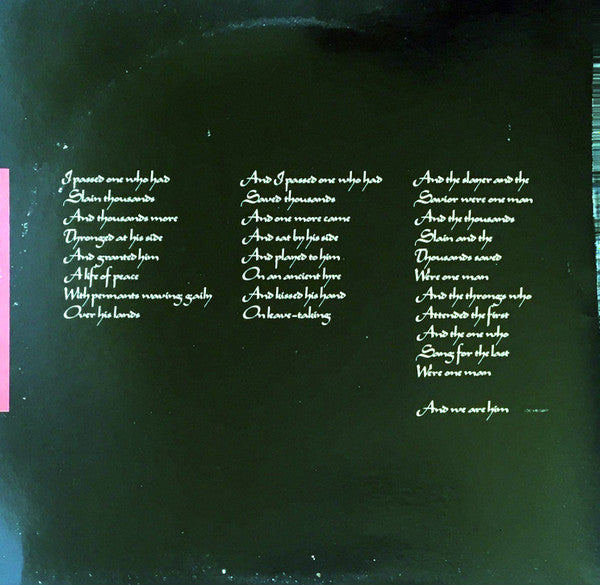 I passed one who had
Slain thousands
And thousands more
Thronged at his side
And granted him
A life of peace
With pennants waving gaily
Over his lands
And I passed one who had
Saved thousands
And one more came
And sat by his side
And played to him
On an ancient lyre
And kissed his hand
On leave-taking
And the slayer and the
Savior were one man
And the thousands
Slain and the
Thousands saved
Were one man
And the throngs who
Attended the first
And the one who
Sang for the last
Were one man
And we are him